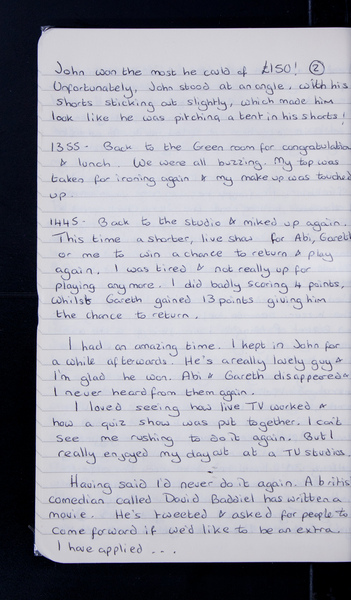 John won the most he could of £150! ②
Unfortunately, John stood at an angle, with his
shorts sticking out slightly, which made him
look like he was pitching a tent in his shorts!
1355 - Back to the Green room for congratulation
& lunch. We were all buzzing. My top was
taken for ironing again & my make up was touched
up.
1445 - Back to the studio & miked up again.
This time a shorter, live show for Abi, Gareth
or me to win a chance to return & play
again. I was tired & not really up for
playing anymore. I did badly scoring 4 points,
whilst Gareth gained 13 points giving him
the chance to return.
I had an amazing time. I kept in John for
a while afterwards. He's a really lovely guy &
I'm glad he won. Abi & Gareth disappeared &
I never heard from them again.
I loved seeing how live TV worked &
how a quiz show was put together. I can't
see me rushing to do it again. But I
really enjoyed my day out at a TV studios.
Having said I'd never do it again. A britis
comedian called David Baddiel has written a
movie. He's tweeted & asked for people to
come forward if we'd like to be an extra.
I have applied . . .